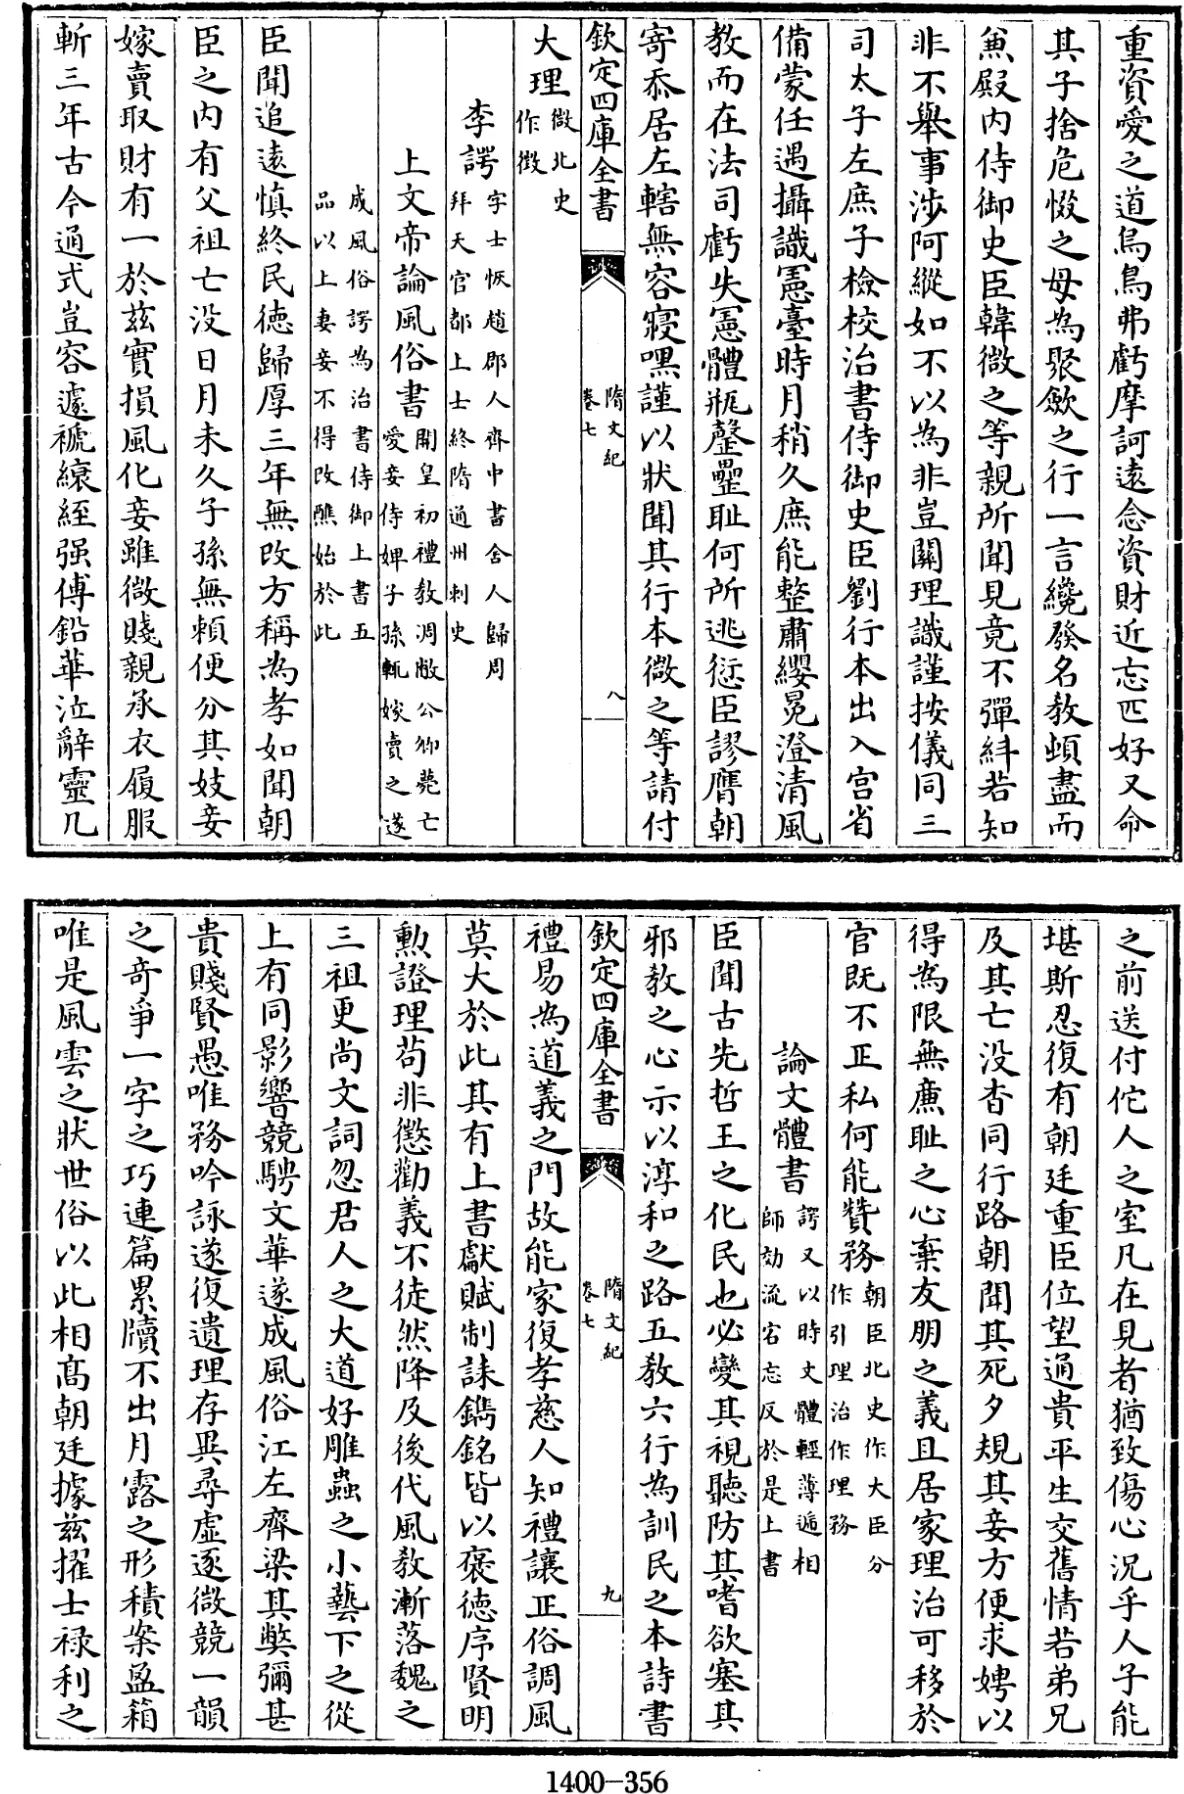 重資愛之道烏鳥弗虧摩訶遠念資財近忘匹好又命
其子捨危惙之母為聚歛之行一言纔發名教頓盡而
兼殿内侍御史臣韓微之等親所聞見竟不彈糾若知
非不舉事涉阿縱如不以為非豈關理識謹按儀同三
司太子左庶子檢校治書侍御史臣劉行本出入宫省
備蒙任遇攝識憲臺時月稍久庶能整肅纓冕澄清風
教而在法司虧失憲體瓶罄罍耻何所逃愆臣謬膺朝
寄忝居左轄無容寢嘿謹以狀聞其行本微之等請付
欽定四庫全書
隋文紀
卷七
八
大理
微北史
作徴
李諤
字士恢趙郡人齊中書舍人歸周
拜天官都上士終隋通州刺史
上文帝論風俗書
開皇初禮教凋敝公卿薨亡
愛妾侍婢子孫輒嫁賣之遂
成風俗諤為治書侍御上書五
品以上妻妾不得改醮始於此
臣聞追遠慎終民徳歸厚三年無改方稱為孝如聞朝
臣之内有父祖亡没日月未久子孫無頼便分其妓妾
嫁賣取財有一於兹實損風化妾雖微賤親承衣履服
斬三年古今通式豈容遽褫縗絰强傅鉛華泣辭靈几
之前送付佗人之室凡在見者猶致傷心况乎人子能
堪斯忍復有朝廷重臣位望通貴平生交舊情若弟兄
及其亡没杳同行路朝聞其死夕規其妾方便求娉以
得為限無亷耻之心棄友朋之義且居家理治可移於
官既不正私何能贊務
朝臣北史作大臣分
作引理治作理務
論文體書
諤又以時文體輕薄遞相
師効流宕忘反於是上書
臣聞古先哲王之化民也必變其視聽防其嗜欲塞其
邪教之心示以淳和之路五教六行為訓民之本詩書
欽定四庫全書
隋文紀
卷七
九
禮易為道義之門故能家復孝慈人知禮讓正俗調風
莫大於此其有上書獻賦制誄鐫銘皆以褒徳序賢明
勲證理苟非懲勸義不徒然降及後代風教漸落魏之
三祖更尚文詞忽君人之大道好雕蟲之小藝下之從
上有同影響競騁文華遂成風俗江左齊梁其弊彌甚
貴賤賢愚唯務吟詠遂復遺理存異尋虚逐微競一韻
之奇爭一字之巧連篇累牘不出月露之形積案盈箱
唯是風雲之狀世俗以此相髙朝廷據兹擢士禄利之
1400-356